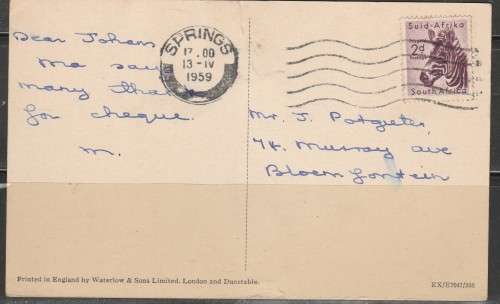 Dear Johan
Ma says
many thanks
for cheque.
M.
SPRINGS
12.00
13-IV
1959
Suid-Afrika
2d
South Africa
Mr. J. Potgieter,
74 Murray ave
Bloemfontein
Printed in England by Waterlow & Sons Limited. London and Dunstable.